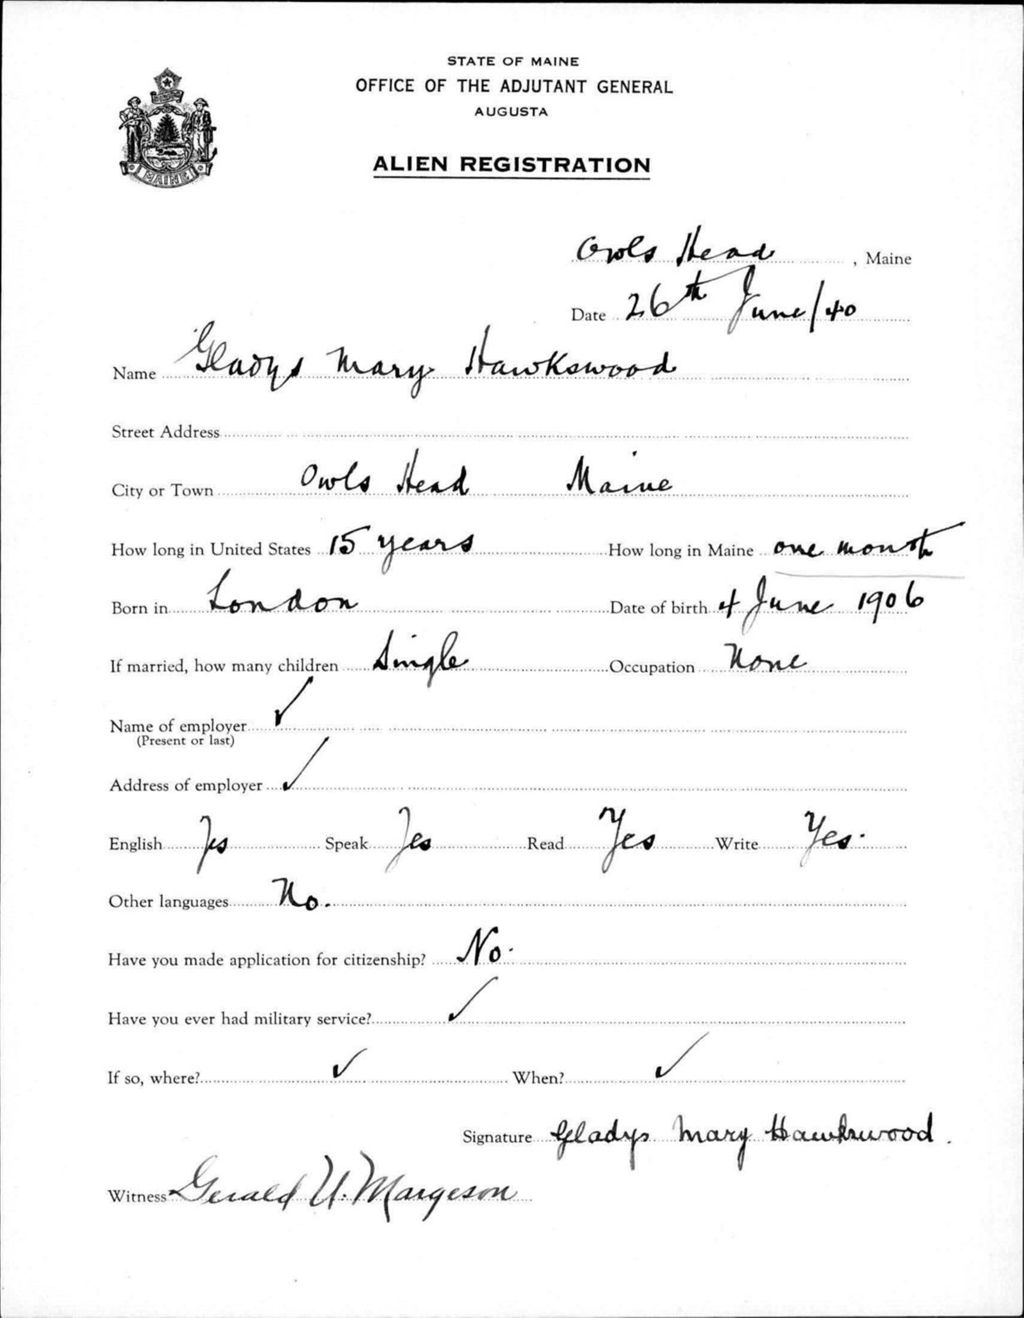 STATE OF MAINE
OFFICE OF THE ADJUTANT GENERAL
AUGUSTA
ALIEN REGISTRATION
MAINE
Owls Head, Maine
Date 26th June/40
Name Gladys Mary Hawkswood
Street Address
City or Town Owls Head Maine
How long in United States 15 years How long in Maine one month
Born in London Date of birth 4 June 1906
If married, how many children Single Occupation None
Name of employer ✓
(Present or last)
Address of employer ✓
English Yes Speak Yes Read Yes Write Yes.
Other languages No.
Have you made application for citizenship? No.
Have you ever had military service? ✓
If so, where? ✓ When? ✓
Signature Gladys Mary Hawkswood.
Witness Gerald U. Margeson